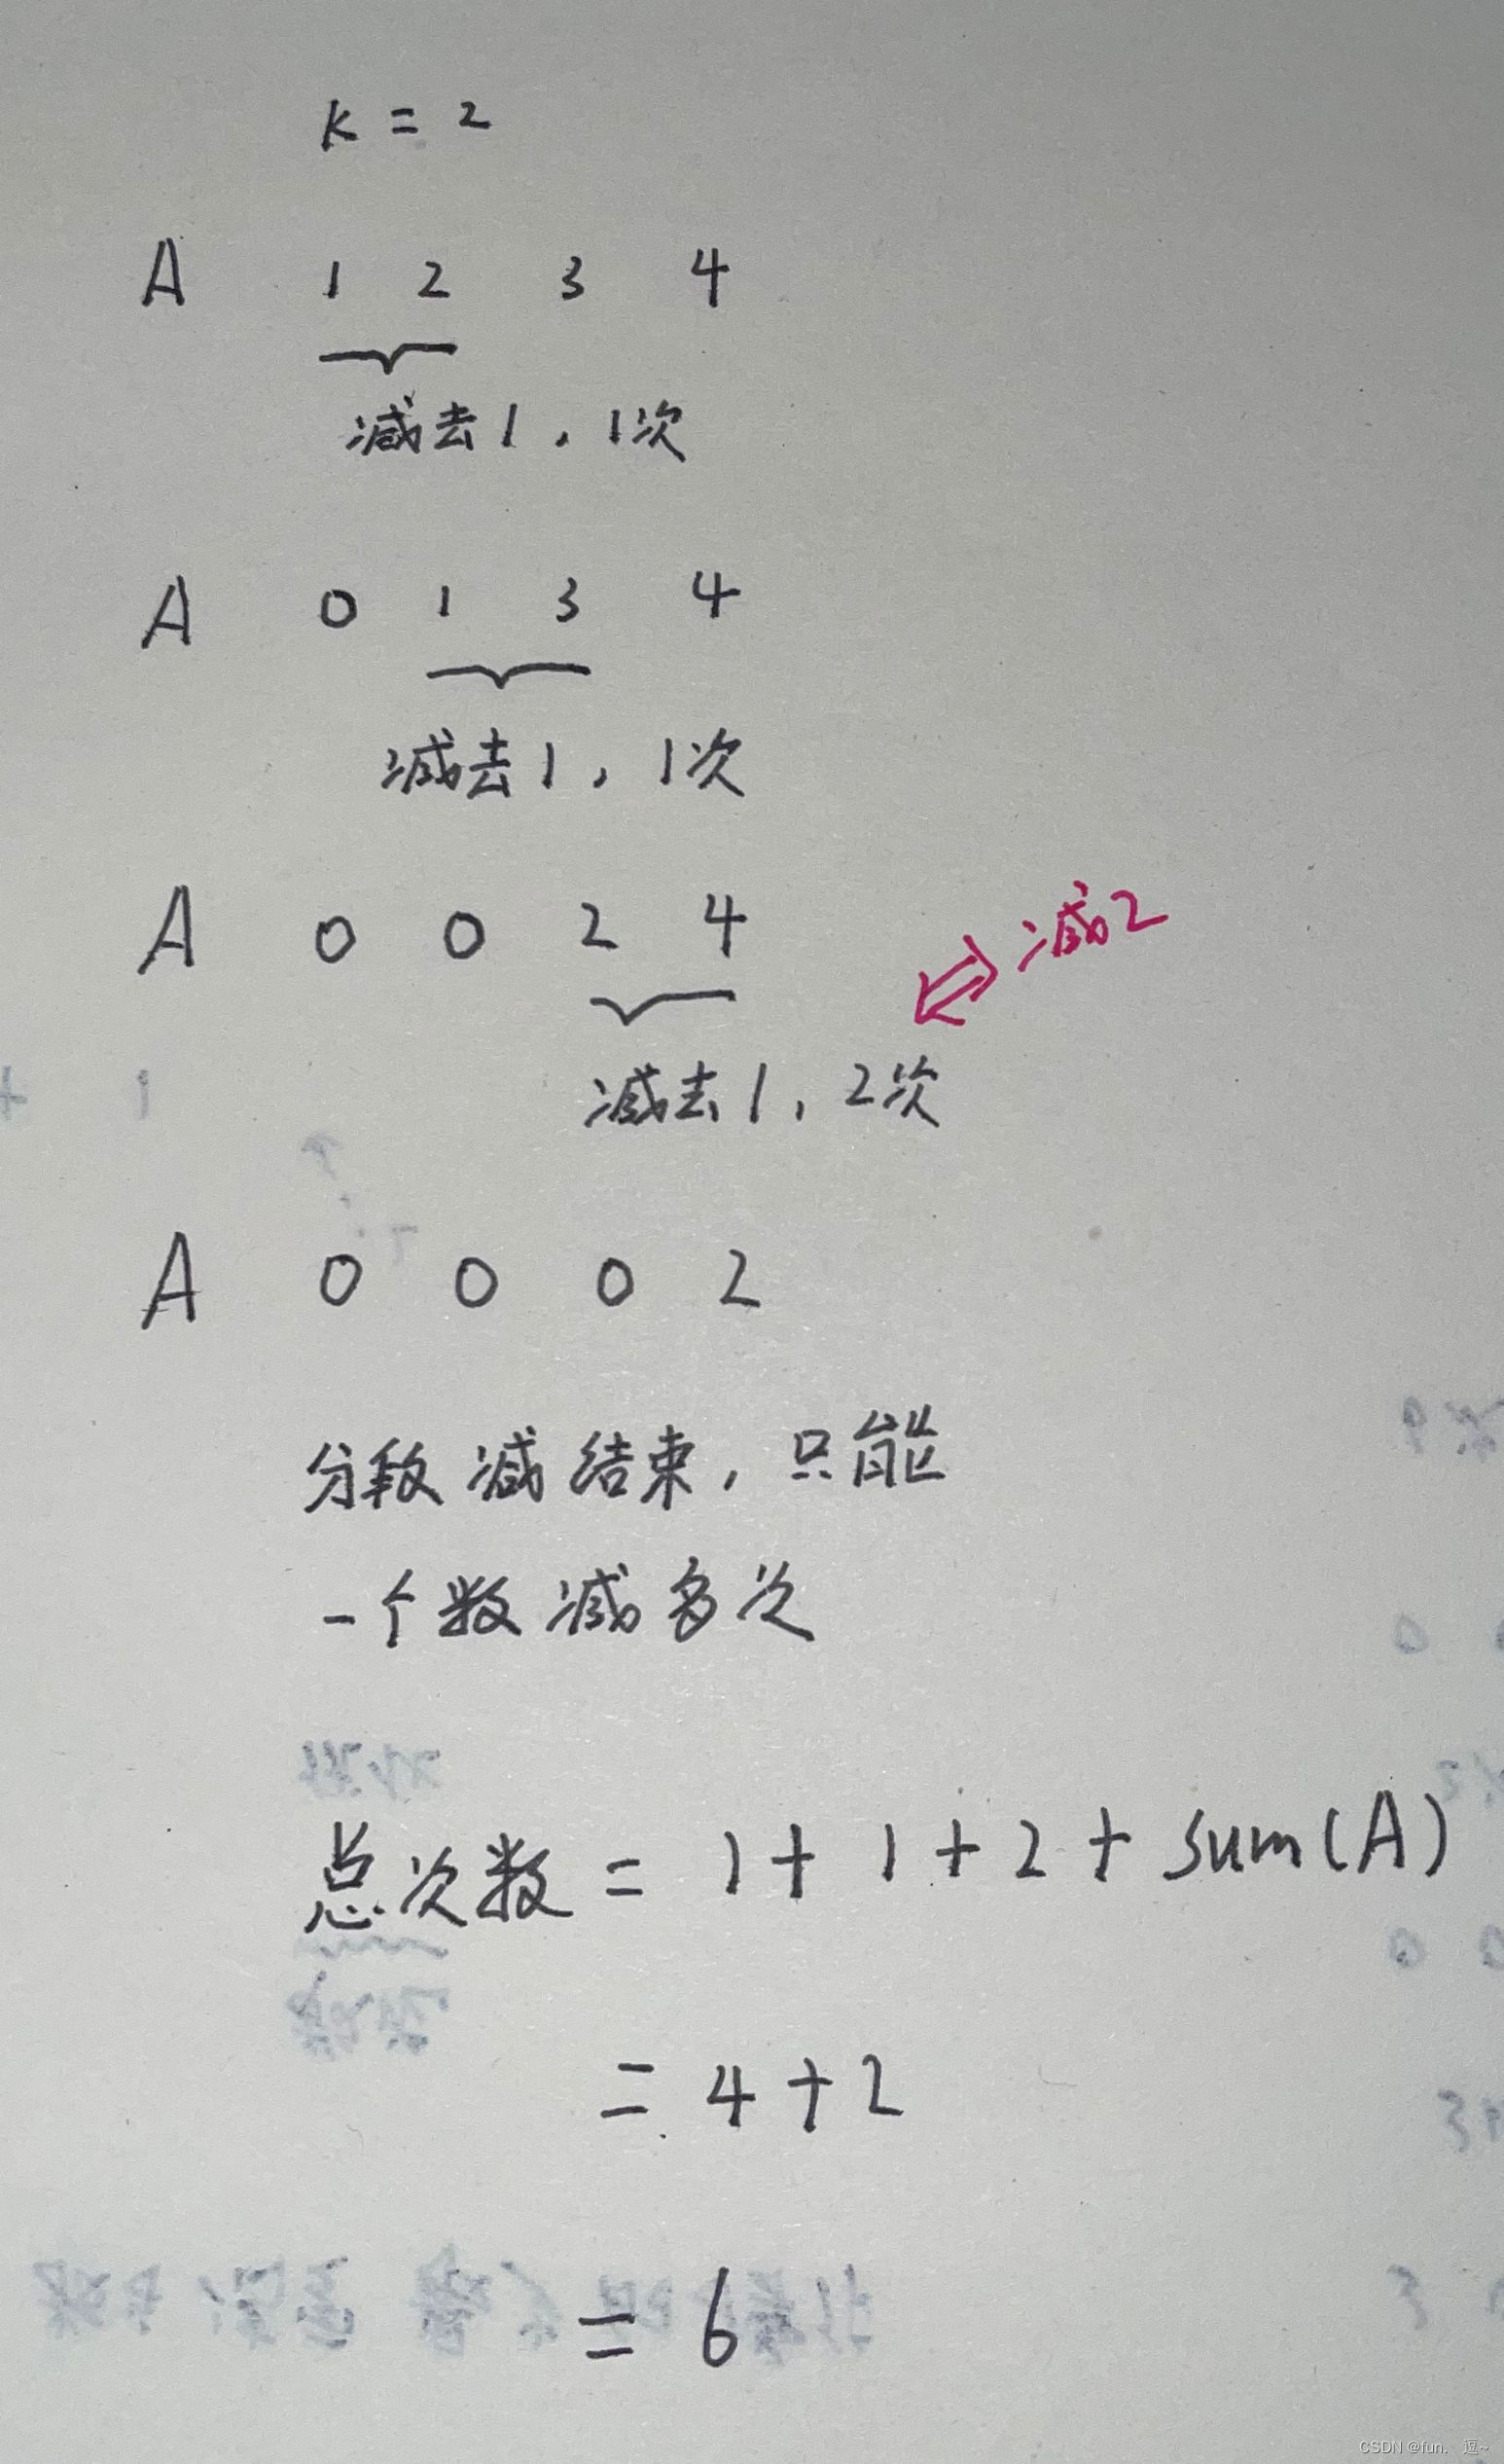 K = 2
A 1 2 3 4
减去1，1次
A 0 1 3 4
减去1，1次
A 0 0 2 4
减2
减去1，2次
A 0 0 0 2
分段减结束，只能
一个数减多次
总次数 = 1 + 1 + 2 + sum(A)
= 4 + 2
= 6
CSDN @fun. 逗~